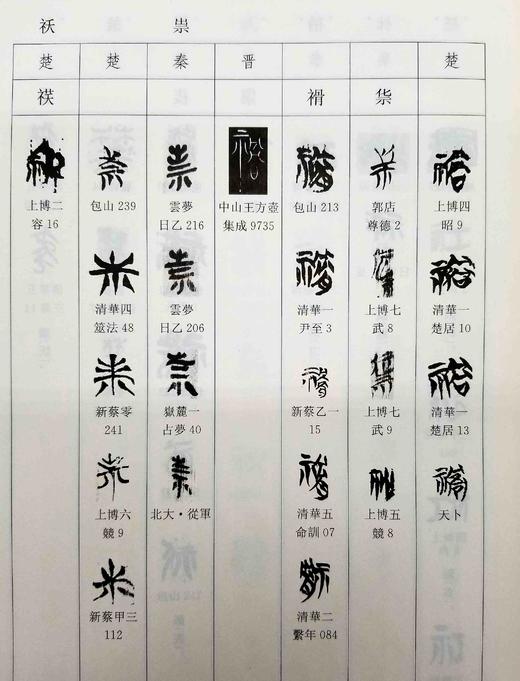 祆 祟
楚 楚 秦 晋 楚
禖 禙 祡
上博二 包山 239 雲夢 中山王方壺 包山 213 郭店 上博四
容 16 日乙 216 集成 9735 尊德 2 昭 9
清華四 雲夢 清華一 上博七 清華一
筮法 48 日乙 206 尹至 3 武 8 楚居 10
新蔡零 嶽麓一 新蔡乙一 上博七 清華一
241 占夢 40 15 武 9 楚居 13
上博六 北大·從軍 清華五 上博五 天卜
競 9 命訓 07 競 8
新蔡甲三 清華二
112 繫年 084